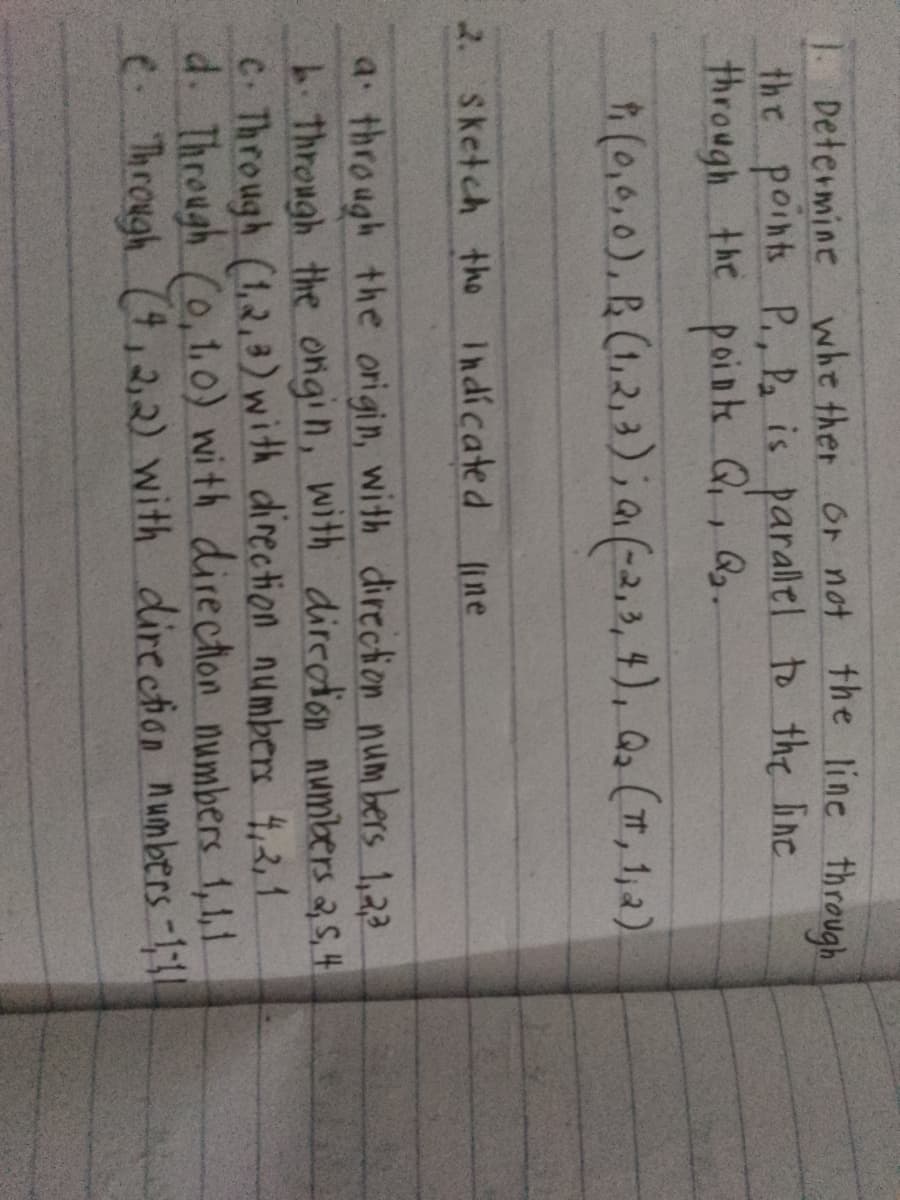 1. Determine whether or not the line through
the points P₁, P₂ is parallel to the line
through the points Q₁, Q₂.
P₁(0,0,0), P₂(1,2,3); Q₁(-2,3,4), Q₂(π,1,2)
2. sketch the indicated line
a. through the origin, with direction numbers 1,2,3
b. Through the origin, with direction numbers 2,5,4
c. Through (1,2,3) with direction numbers 4,2,1
d. Through (0,1,0) with direction numbers 1,1,1
e. Through (4,2,2) with direction numbers -1,-1,1